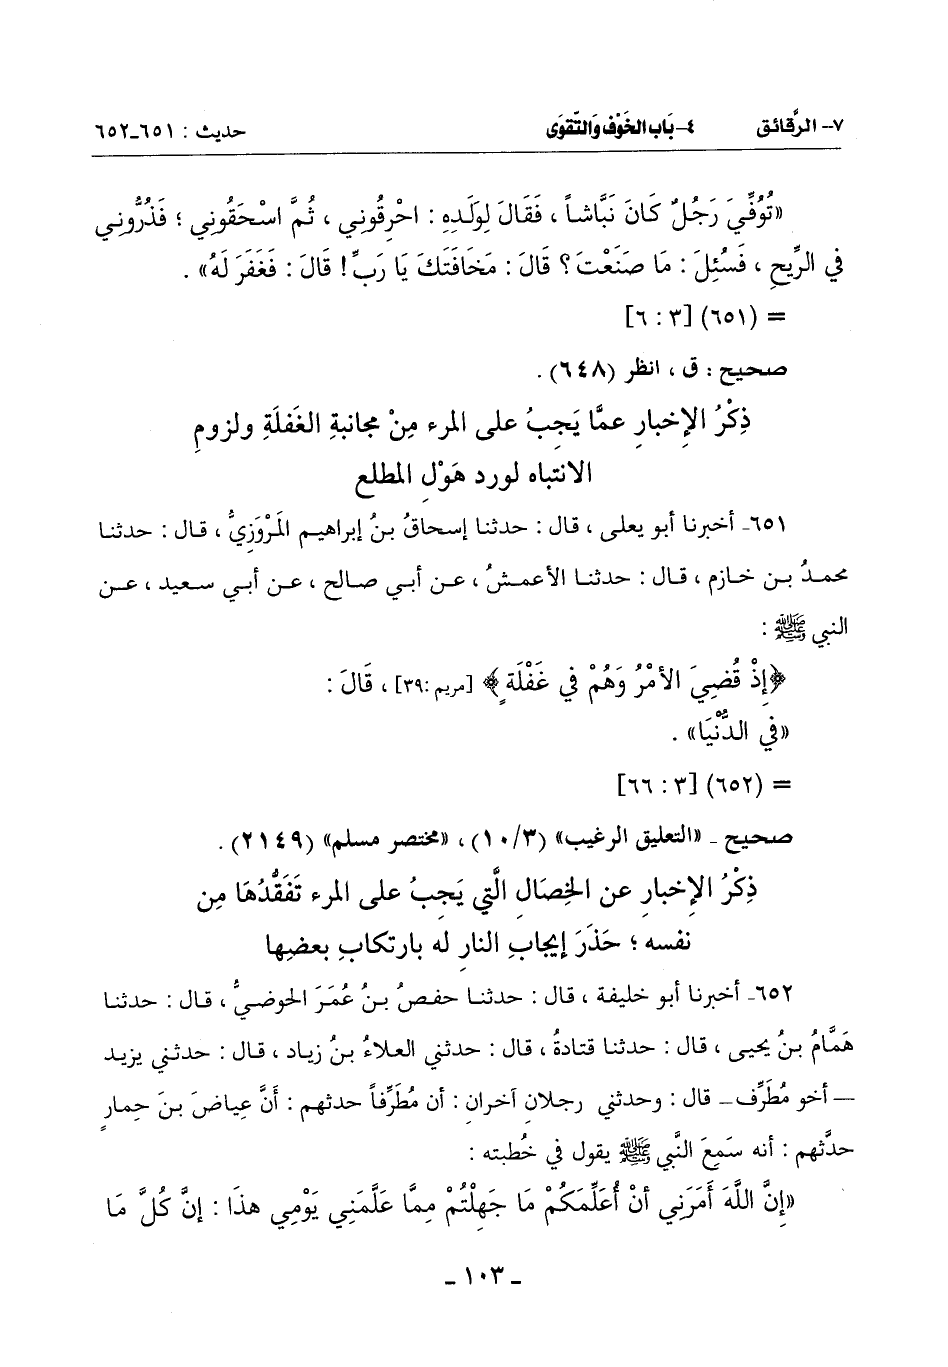 ٧- الرَّقائق ٤- بَاب الخَوْف وَالتَّقوَى حديث : ٦٥١-٦٥٢
«تُوُفِّيَ رَجُلٌ كَانَ نَبَّاشاً ، فَقَالَ لِوَلَدِهِ : احْرِقُونِي ، ثُمَّ اسْحَقُونِي ؛ فَذُرُّونِي
في الرِّيحِ ، فَسُئِلَ : مَا صَنَعْتَ ؟ قالَ : مَخَافَتَكَ يَا رَبِّ ! قالَ : فَغَفَرَ لَهُ» .
= (٦٥١) [٣ : ٦]
صحيح : ق ، انظر (٦٤٨) .
ذِكْرُ الإخبارِ عمَّا يَجِبُ على المرء مِنْ مجانبةِ الغَفلَةِ ولزومِ
الانتباه لورد هَوْلِ المطلع
٦٥١- أخبرنا أبو يعلى ، قال : حدثنا إسحاقُ بنُ إبراهيم المَرْوَزِيُّ ، قال : حدثنا
محمدُ بن خازم ، قال : حدثنا الأعمشُ ، عن أبي صالح ، عن أبي سعيد ، عن
النبي ﷺ :
﴿إِذْ قُضِيَ الأمْرُ وَهُمْ فِي غَفْلَةٍ﴾ [مريم :٣٩] ، قَالَ :
«في الدُّنْيَا» .
= (٦٥٢) [٣ : ٦٦]
صحيح ـ «التعليق الرغيب» (٣/ ١٠) ، «مختصر مسلم» (٢١٤٩) .
ذِكْرُ الإخبارِ عن الخِصَالِ الَّتي يَجِبُ على المرء تَفَقُّدُهَا مِن
نفسه ؛ حَذَرَ إيجابِ النار له بارتكابِ بعضِها
٦٥٢- أخبرنا أبو خليفة ، قال : حدثنا حفصُ بنُ عُمَرَ الحوضيُّ ، قال : حدثنا
هَمَّامُ بنُ يحيى ، قال : حدثنا قتادةُ ، قال : حدثني العلاءُ بنُ زياد ، قال : حدثني يزيد
— أخو مُطَرِّف ـ قال : وحدثني رجلان آخران : أن مُطَرِّفاً حدثهم : أنَّ عِياضَ بنَ حِمارٍ
حدَّثهم : أنه سَمِعَ النَّبي ﷺ يقول في خُطبته :
«إنَّ اللَّهَ أَمَرَنِي أنْ أُعَلِّمَكُمْ مَا جَهِلْتُمْ مِمَّا عَلَّمَنِي يَوْمِي هذَا : إنَّ كُلَّ مَا
ـ ١٠٣ ـ